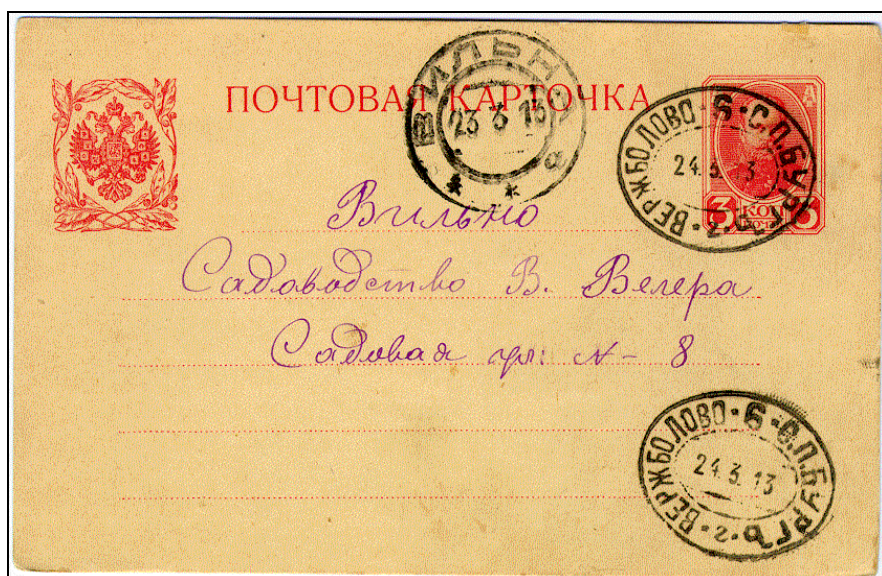 ПОЧТОВАЯ КАРТОЧКА
ВИЛЬНА
23 3 13
а
ВЕРЖБОЛОВО · 6 · С.П.БУРГЪ · г ·
24.3.13
3 КОП 3
Вильно
Садоводство В. Велера
Садовая ул: N- 8
ВЕРЖБОЛОВО · 6 · С.П.БУРГЪ · г ·
24.3.13